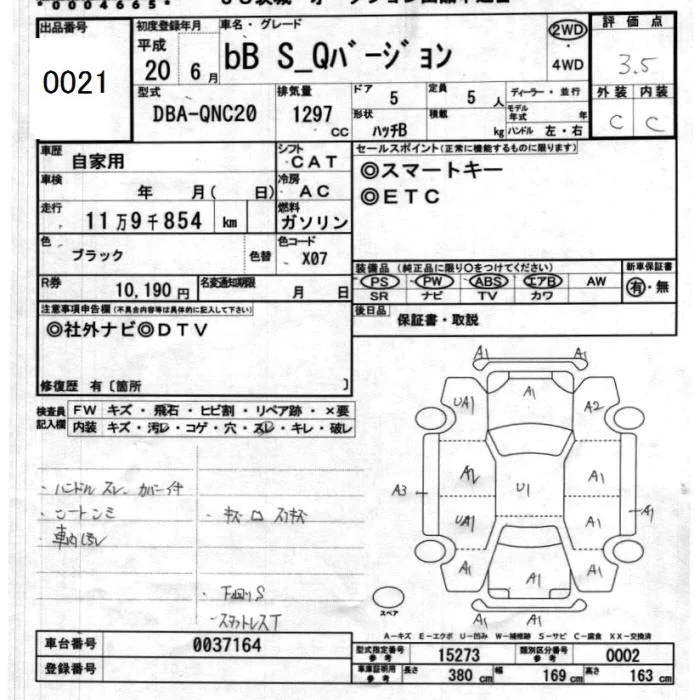 *0004665*
出品番号
0021
初度登録年月
平成
20 6月
車名・グレード
bB S_Qバージョン
2WD
・
4WD
評価点
3.5
型式
DBA-QNC20
排気量
1297
CC
ドア
5
定員
5人
ディーラー・並行
モデル年式 年
形状
ハッチB
積載
kg
ハンドル 左・右
外装 内装
C C
車歴
自家用
シフト
CAT
車検
年 月( 日)
冷房
AC
走行
11万9千854 km
燃料
ガソリン
色
ブラック
色替
色コード
X07
セールスポイント(正常に機能するものに限ります)
◎スマートキー
◎ETC
R券
10,190円
名変通知期限
月 日
装備品(純正品に限り○をつけてください)
新車保証書
PS PW ABS エアB AW
SR ナビ TV カワ
有・無
後日品
保証書・取説
注意事項申告欄(不具合内容等は具体的に記入して下さい)
◎社外ナビ◎DTV
修復歴 有〔箇所 〕
検査員
記入欄
FW キズ・飛石・ヒビ割・リペア跡・×要
内装 キズ・汚レ・コゲ・穴・スレ・キレ・破レ
・ハンドルスレ、カバー付
・シートシミ
・車内汚レ
・下回りS
・スタッドレスT
A1 A1
UA1 A1 A2
A3 A2 U1 A1 A1
UA1 A1
A1 A1 A1
A1 A1
スペア
A-キズ E-エクボ U-凹み W-補修跡 S-サビ C-腐食 XX-交換済
車台番号
0037164
登録番号
型式指定番号
参考
15273
類別区分番号
参考
0002
車庫証明用
参考
長さ 380 cm
幅 169 cm
高さ 163 cm